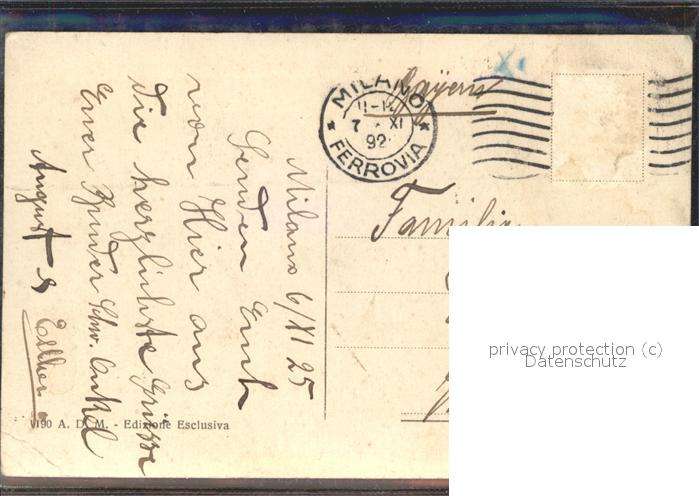 Milano 6/XI 25
Senden Euch
von Hier aus
die herzlichste Grüsse
Euer Bruder Schw. Onkel
August & Esther
Bayern
XI
MILANO
11-12
7 XI
92
FERROVIA
Familie
privacy protection (c)
Datenschutz
1190 A. D. M. - Edizione Esclusiva